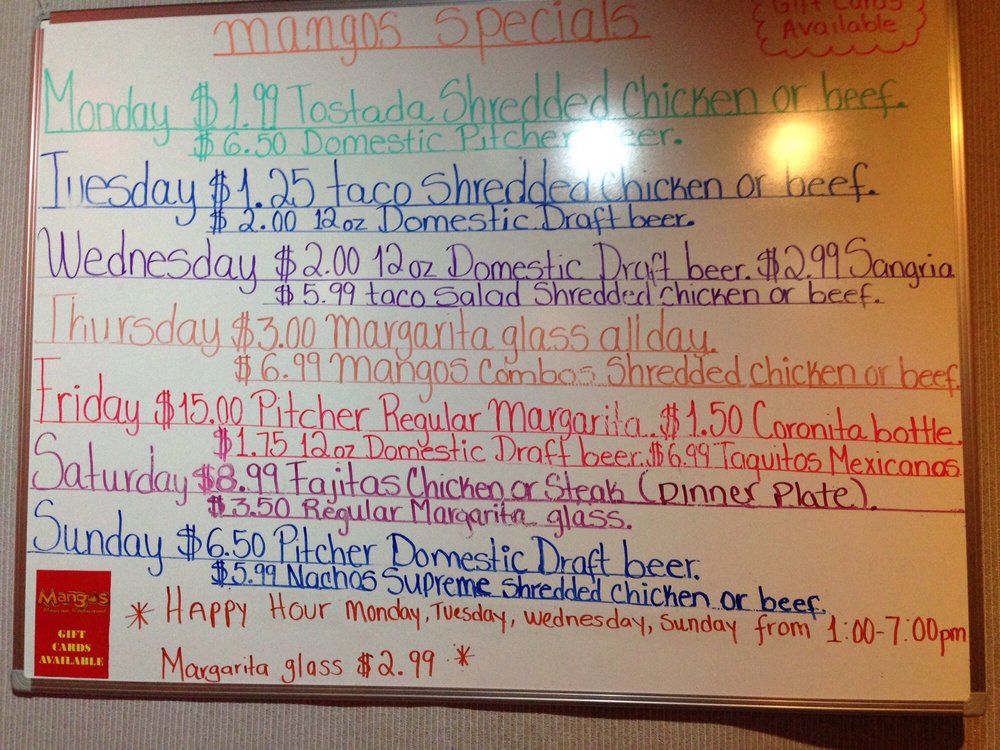 Mangos Specials
Gift Cards
Available
Monday $1.99 Tostada Shredded Chicken or beef.
$6.50 Domestic Pitcher Beer.
Tuesday $1.25 taco Shredded Chicken or beef.
$2.00 12oz Domestic Draft beer.
Wednesday $2.00 12oz Domestic Draft beer. $2.99 Sangria
$5.99 taco Salad Shredded Chicken or beef.
Thursday $3.00 Margarita glass all day.
$6.99 Mangos Combos Shredded Chicken or beef.
Friday $15.00 Pitcher Regular Margarita. $1.50 Coronita bottle.
$1.75 12oz Domestic Draft beer. $6.99 Taquitos Mexicanos.
Saturday $8.99 Fajitas Chicken or Steak (Dinner Plate).
$3.50 Regular Margarita glass.
Sunday $6.50 Pitcher Domestic Draft beer.
$5.99 Nachos Supreme shredded chicken or beef.
* Happy Hour Monday, Tuesday, Wednesday, Sunday from 1:00-7:00pm
Margarita glass $2.99 *
Mangos
Mexican Restaurant
GIFT
CARDS
AVAILABLE